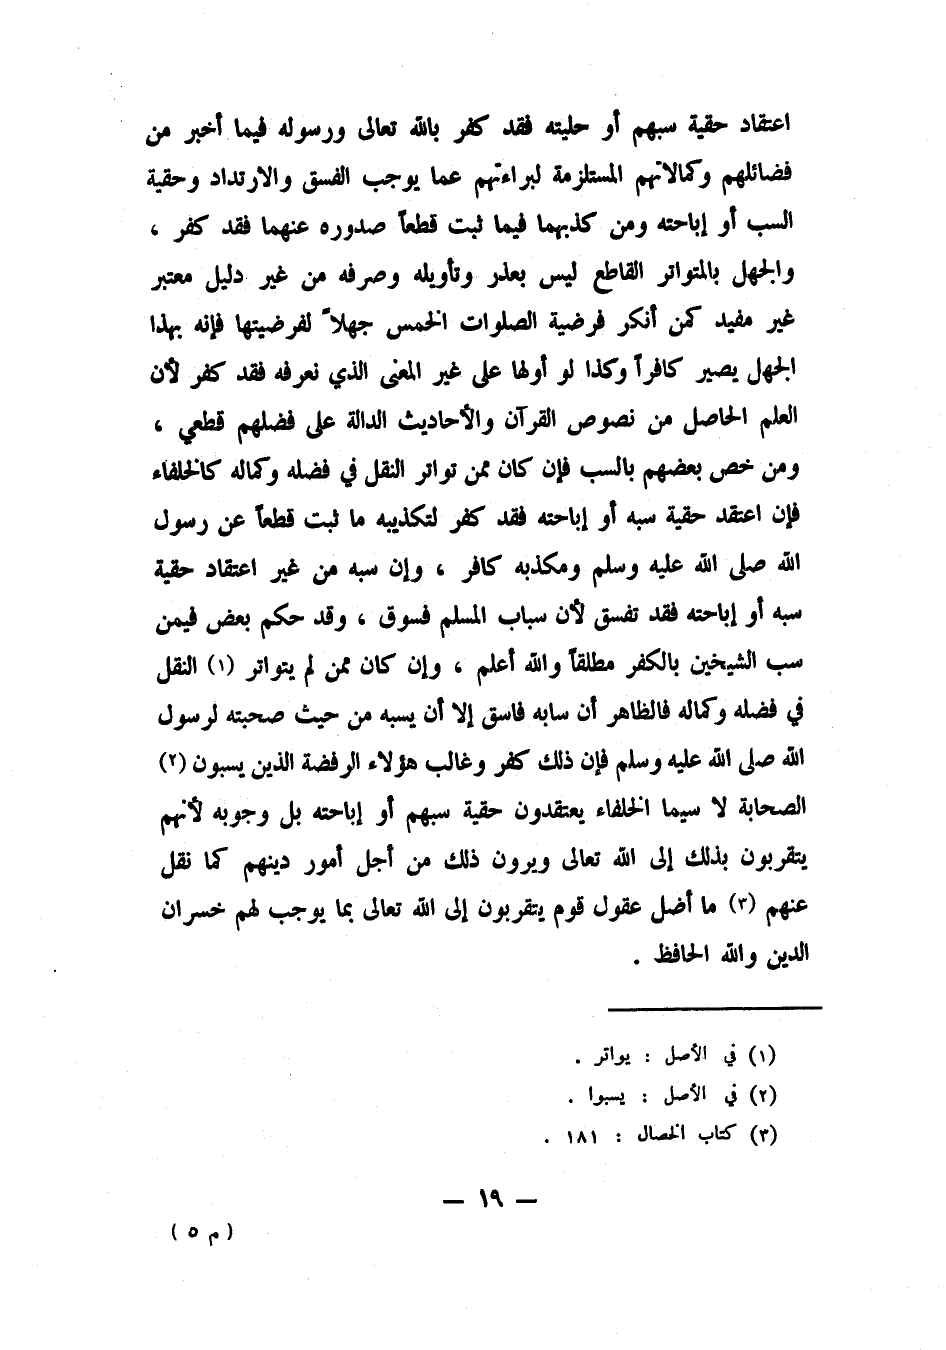 اعتقاد حقية سبهم أو حليته فقد كفر بالله تعالى ورسوله فيما أخبر من
فضائلهم وكمالاتهم المستلزمة لبراءتهم عما يوجب الفسق والارتداد وحقية
السب أو إباحته ومن كذبهما فيما ثبت قطعاً صدوره عنهما فقد كفر ،
والجهل بالمتواتر القاطع ليس بعذر وتأويله وصرفه من غير دليل معتبر
غير مفيد كمن أنكر فرضية الصلوات الخمس جهلاً لفرضيتها فإنه بهذا
الجهل يصير كافراً وكذا لو أولها على غير المعنى الذي نعرفه فقد كفر لأن
العلم الحاصل من نصوص القرآن والأحاديث الدالة على فضلهم قطعي ،
ومن خص بعضهم بالسب فإن كان ممن تواتر النقل في فضله وكماله كالخلفاء
فإن اعتقد حقية سبه أو إباحته فقد كفر لتكذيبه ما ثبت قطعاً عن رسول
الله صلى الله عليه وسلم ومكذبه كافر ، وإن سبه من غير اعتقاد حقية
سبه أو إباحته فقد تفسق لأن سباب المسلم فسوق ، وقد حكم بعض فيمن
سب الشيخين بالكفر مطلقاً والله أعلم ، وإن كان ممن لم يتواتر (١) النقل
في فضله وكماله فالظاهر أن سابه فاسق إلا أن يسبه من حيث صحبته لرسول
الله صلى الله عليه وسلم فإن ذلك كفر وغالب هؤلاء الرفضة الذين يسبون (٢)
الصحابة لا سيما الخلفاء يعتقدون حقية سبهم أو إباحته بل وجوبه لأنهم
يتقربون بذلك إلى الله تعالى ويرون ذلك من أجل أمور دينهم كما نقل
عنهم (٣) ما أضل عقول قوم يتقربون إلى الله تعالى بما يوجب لهم خسران
الدين والله الحافظ .
(١) في الأصل : يواتر .
(٢) في الأصل : يسبوا .
(٣) كتاب الخصال : ١٨١ .
— ١٩ —
( م ٥ )